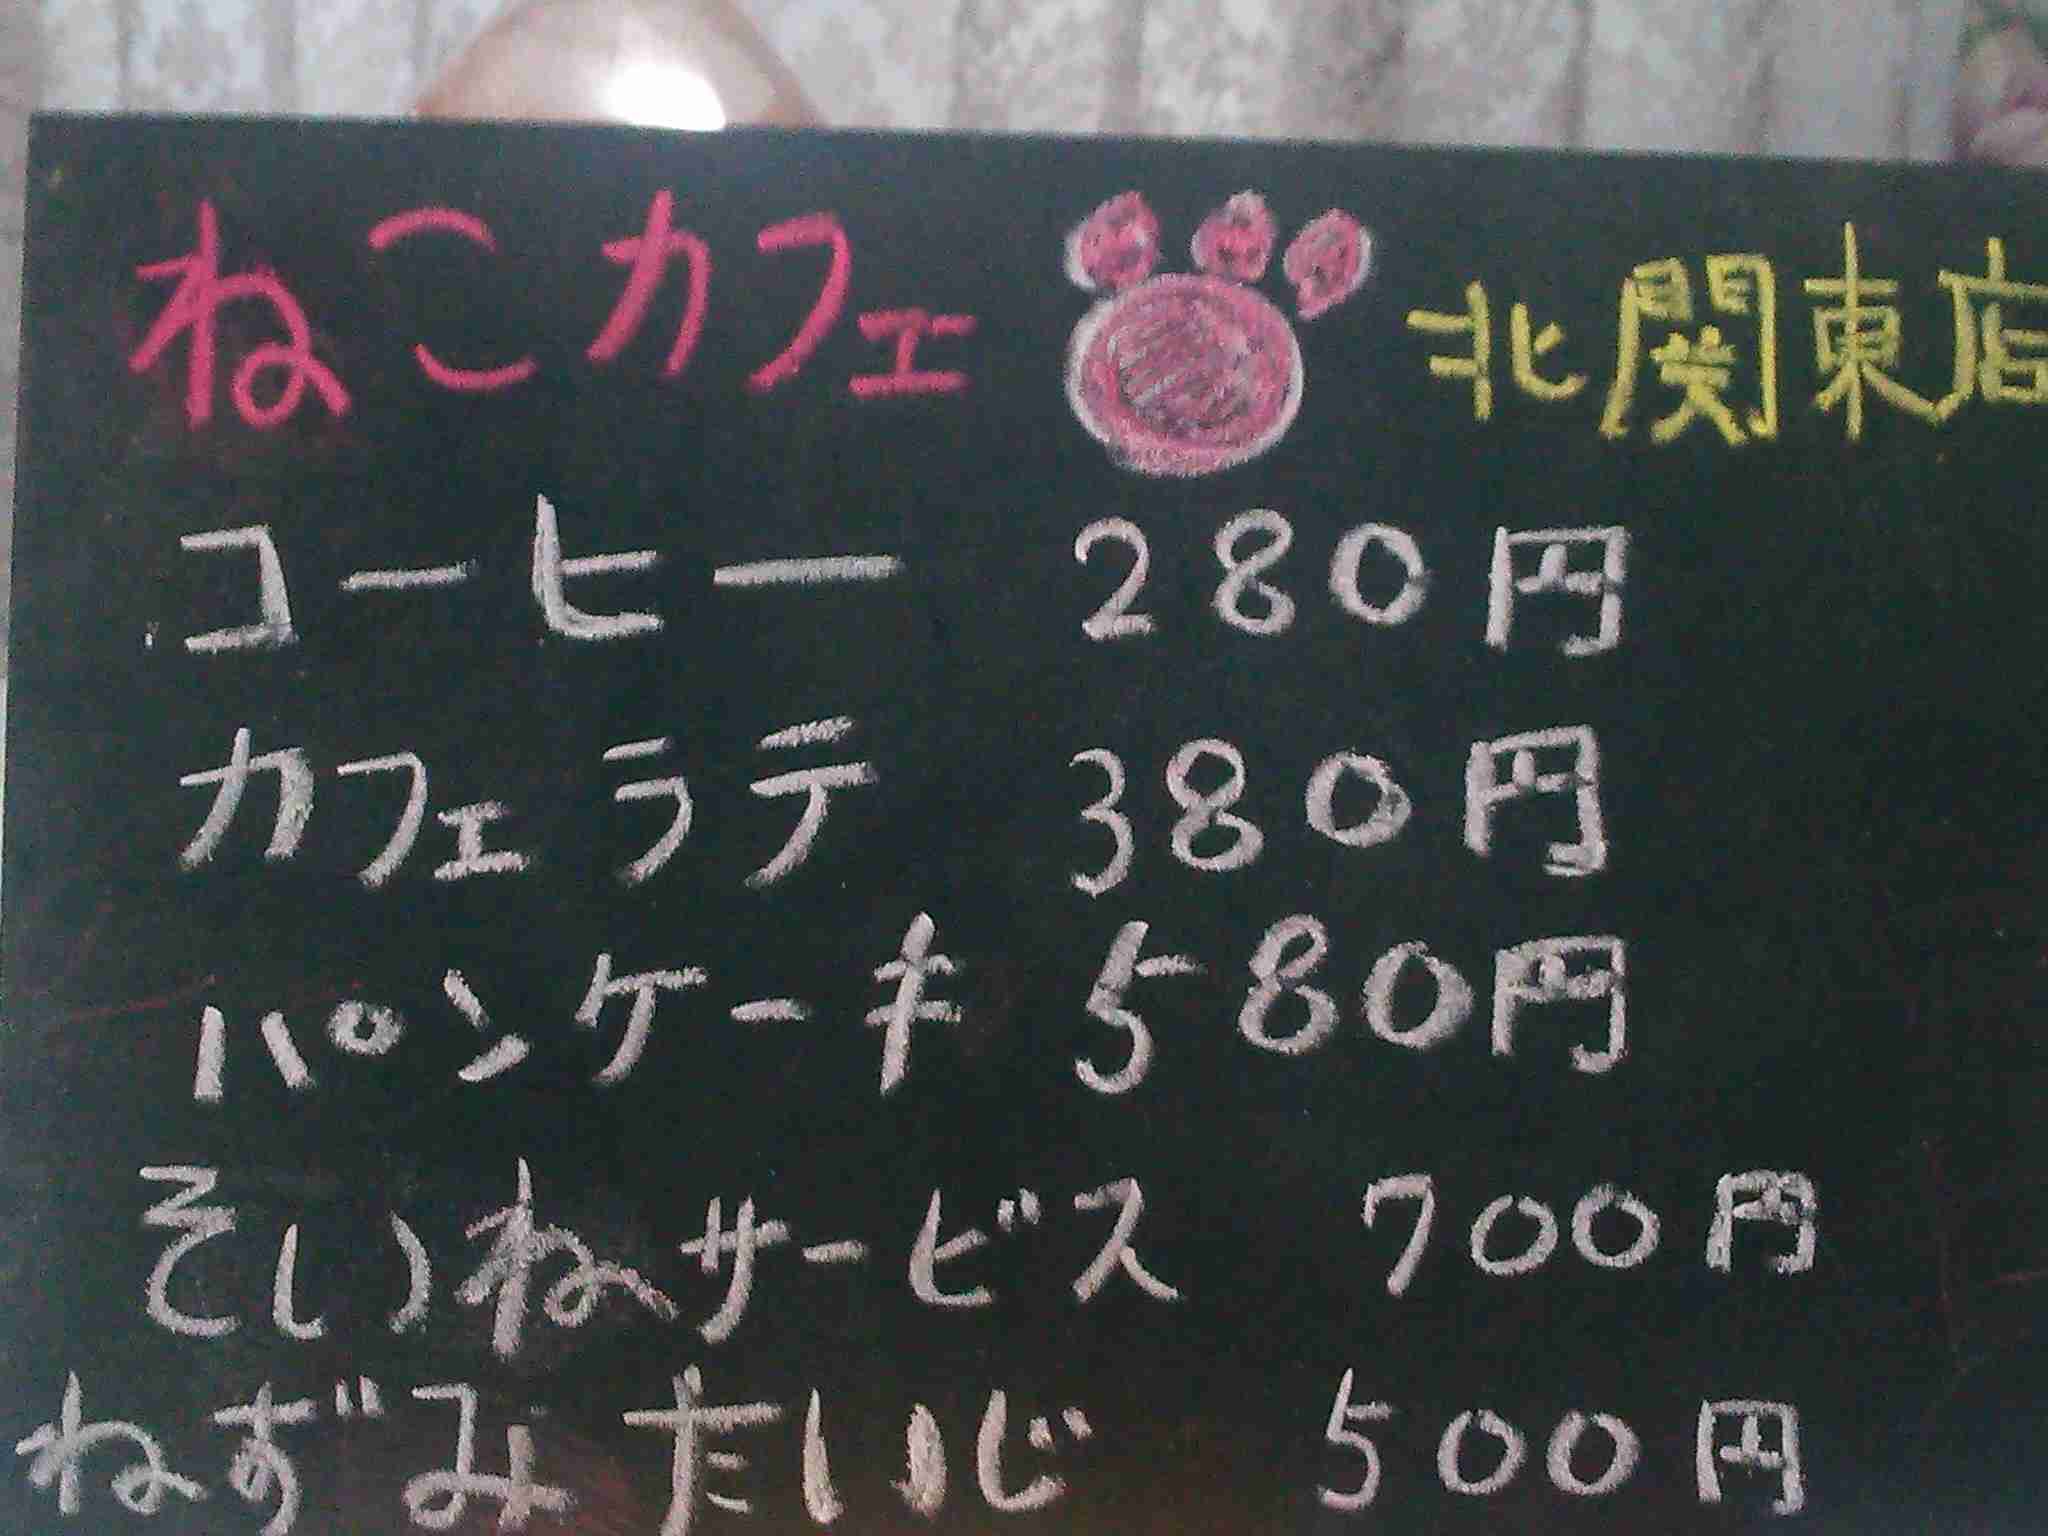 ねこカフェ 北関東店
コーヒー 280円
カフェラテ 380円
パンケーキ 580円
そいねサービス 700円
ねずみたいじ 500円